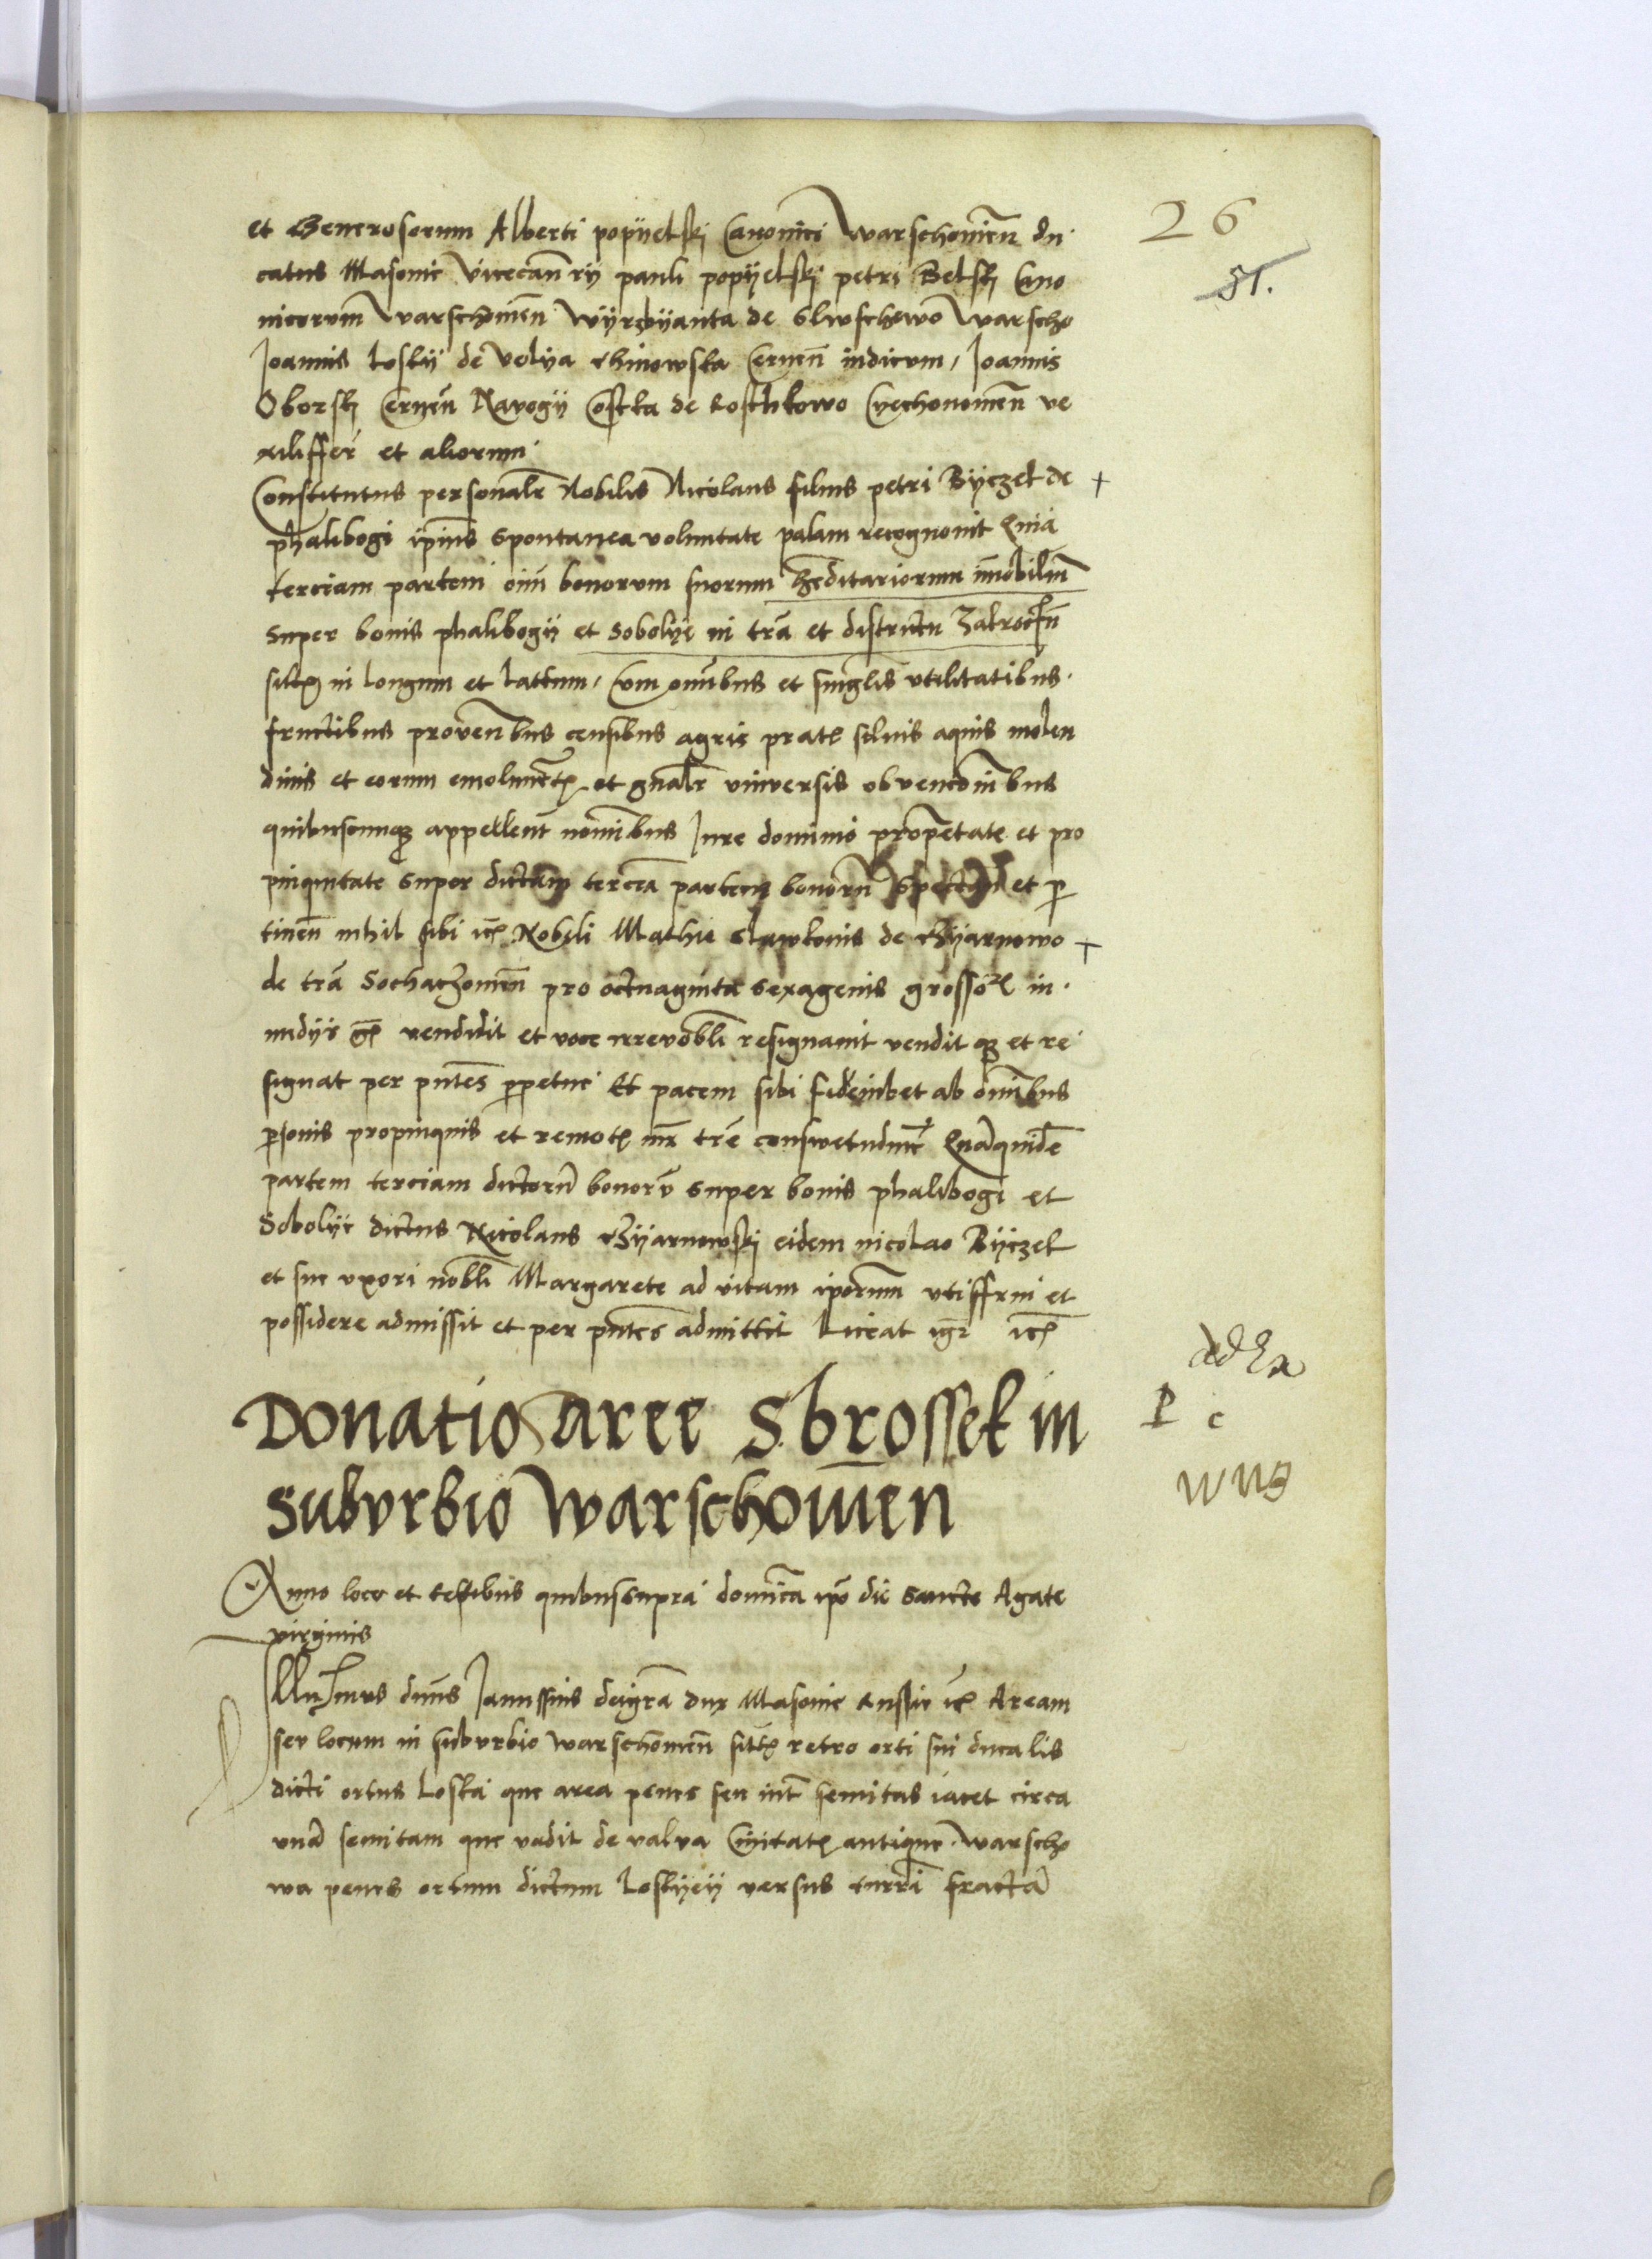 et Generosorum Alberti popÿelskj Canonici Warschouien du
catus Masouie Vicecanrÿ pauli popÿelskj petri Belskj Cano
nicorum Varschouien Wÿrzbÿanta de Sluschewo Varscho
Joannis Loskÿ de Volya chinowska Cernen iudicum, Joannis
Oborskj Cernen Narogÿ Costka de Roschkowo Cyechonouien ve
xiliffer et aliorum
Constitutus personalr Nobilis Nicolaus filius petri Bÿczek de +
phalibogi ipius spontanea voluntate palam recognouit Quia
terciam partem oim bonorum suorum heditariorum imobilium
super bonis phalibogÿ et Sobolye in tra et districtu Zakrocin
sitt in longum et lattum, Cum omibus et singlis vtilitatibus
fructibus prouenbus censibus agris prat siluis aquis molen
dinis et eorum emolument et gnalr vniuersis obuencionibus
quibuscunq appellent nominibus Jure dominio proprietate et pro
pinquitate super dictam tercia partem bonoru spectan et per
tinen nihil sibi etc Nobili Mathie slawkonis de chÿarnowo +
de tra Sochaczouien pro octuaginta sexagenis grossor in
mediis g vendidit et voce irreuobli resignauit vendit q et re
signat per pntes perpetue Et pacem sibi fideiubet ab omibus
personis propinquis et remot iur tre conswetudine Quaquide
partem terciam dictoru bonoru super bonis phalibogi et
Sobolye dictus Nicolaus chÿarnowskj eidem nicolao Bÿczek
et sue vxori nobli Margarete ad vitam ipsorum vtiffrui et
possidere admissit et per pntes admittit Liceat igr etc
Donatio aree Sbrossek in
suburbio Warschouien
Anno loco et testibus quibus supra dominica ipo die Sancte Agate
virginis
Illusmus duns Janussius deigra dux Masouie Russie etc Aream
seu locum in suburbio Warschouien sitt retro orti sui ducalis
dicti ortus Loski que area penes seu int semitas iacet circa
vna semitam que vadit de valua Ciuitat antique Warscho
wa penes ortum dictum Loskÿeÿ versus turri fracta
26
51.
P c